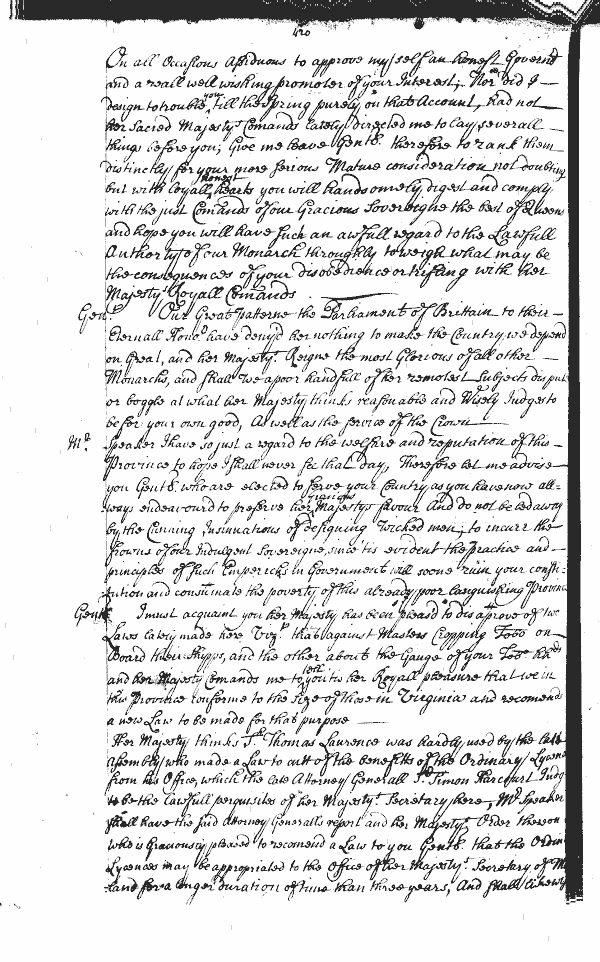 420
On all Occasions Assiduous to approve my self an honest Govern
and a reall well wishing promoter of your Interest; Nor did I
design to trouble you till the Spring purely on that Account, had not
her Sacred Majestys Comands lately directed me to lay severall
things before you; Give me leave Gent. therefore to rank them
distinctly for your more serious Mature consideration not doubting
but with loyall honest hearts you will handsomely digest and comply
with the just Comands of our Gracious Sovereigne the best of Queens
and hope you will have such an awfull regard to the Lawfull
Authority of our Monarch throughly to weigh what may be
the consequences of your disobedience or trifling with her
Majestys Royall Comands
Gent. Our Great patterne the Parliament of Brittain to their
Eternall Hono.r have deny'd her nothing to make the Country we depend
on Great, and her Majesty.s Reigne the most Glorious of all other
Monarchs, and shall we a poor handfull of her remotest Subjects disput
or boggle at what her Majesty thinks reasonable and Wisely Judges to
be for your own good, As well as the service of the Crown
M.r Speaker I have so just a regard to the welfare and reputation of this
Province to hope I shall never see that day, Therefore let me advise
you Gent. who are elected to serve your Country, as you have now all-
ways endeavour'd to preserve her Majestys gracious favour And do not be led away
by the Cunning Insinuations of designing wicked men; to incurr the
frowns of our Indulgent Sovereigne, since 'tis evident the practice and
principles of such Empericks in Government will soone ruin your consti-
tution and consumate the poverty of this already poor languishing Province
Gent. I must acquaint you her Majesty has been pleas'd to disaprove of two
Laws lately made here Viz.t that against Masters Cropping Tobb on
Board their Shipps, and the other about the Gauge of your Tob hhds
and her Majesty Comands me to tell you tis her Royall pleasure that we in
this Province conforme to the size of those in Virginia and recomend
a new Law to be made for that purpose
Her Majesty thinks S.r Thomas Laurence was hardly used by the late
Assembly who made a Law to cutt of the benefitts of the Ordinary Lycence
from his Office, which the late Attorney Generall S.r Simon Harcourt Judg
to be the lawfull perquisites of her Majesty.s Secretary here, M.r Speaker
shall have the said Attorney Generall's report and her Majesty.s Order thereon
who is Graciously pleased to recomend a Law to you Gent. that the Ordin
Lycences may be appropriated to the Office of her Majesty.s Secretary of M
land for a longer duration of time than three years, And shall likewis